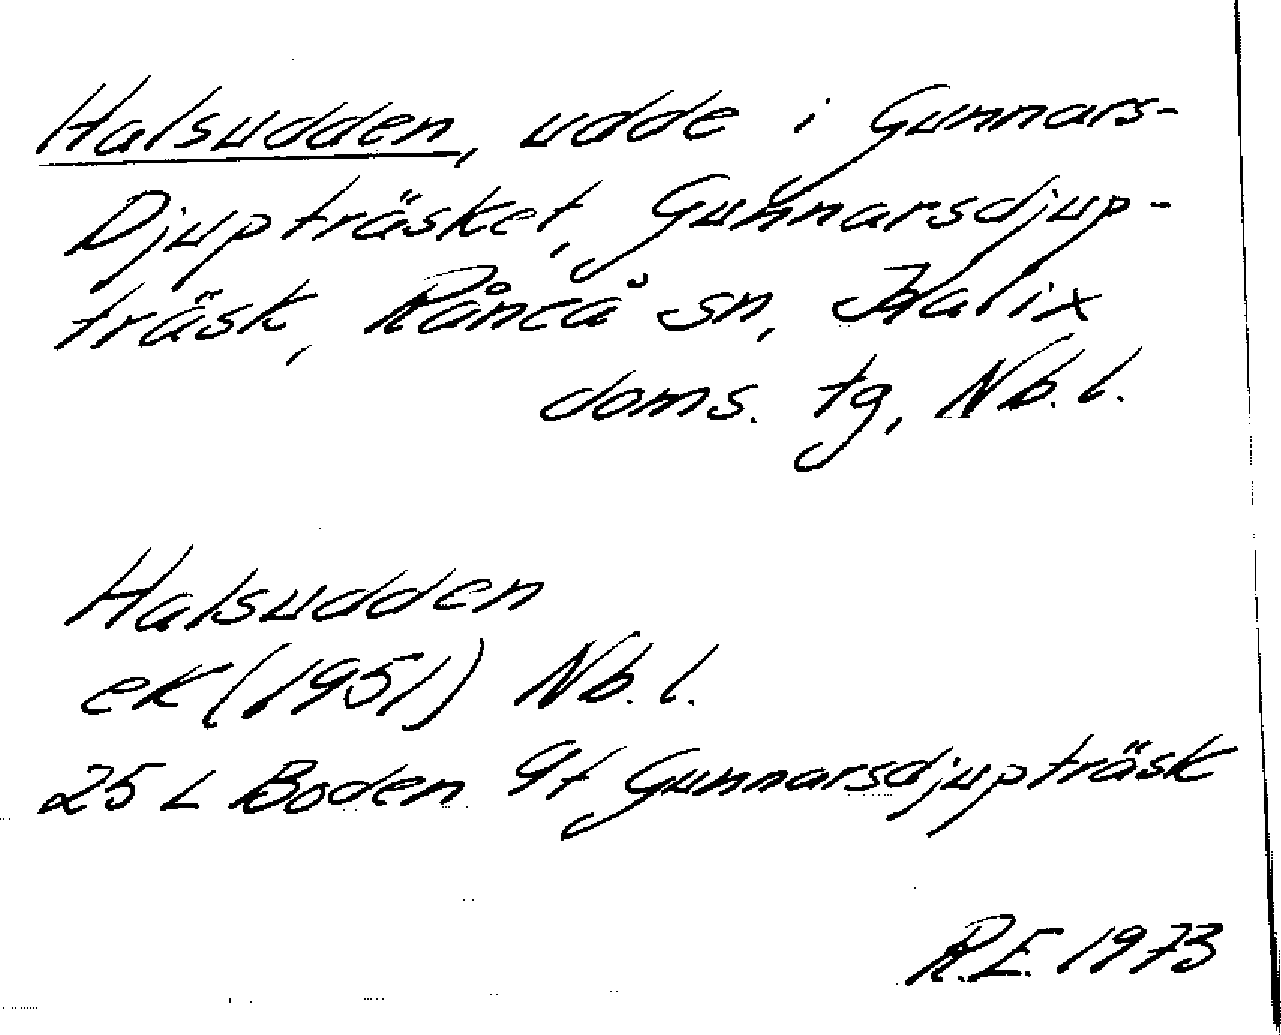 Halsudden, udde i Gunnars-
Djupträsket, Gunnarsdjup-
träsk, Råneå sn, Kalix
doms. tg, Nb. l.
Halsudden
ek (1951) Nb. l.
25 L Boden 9f Gunnarsdjupträsk
R.E. 1973